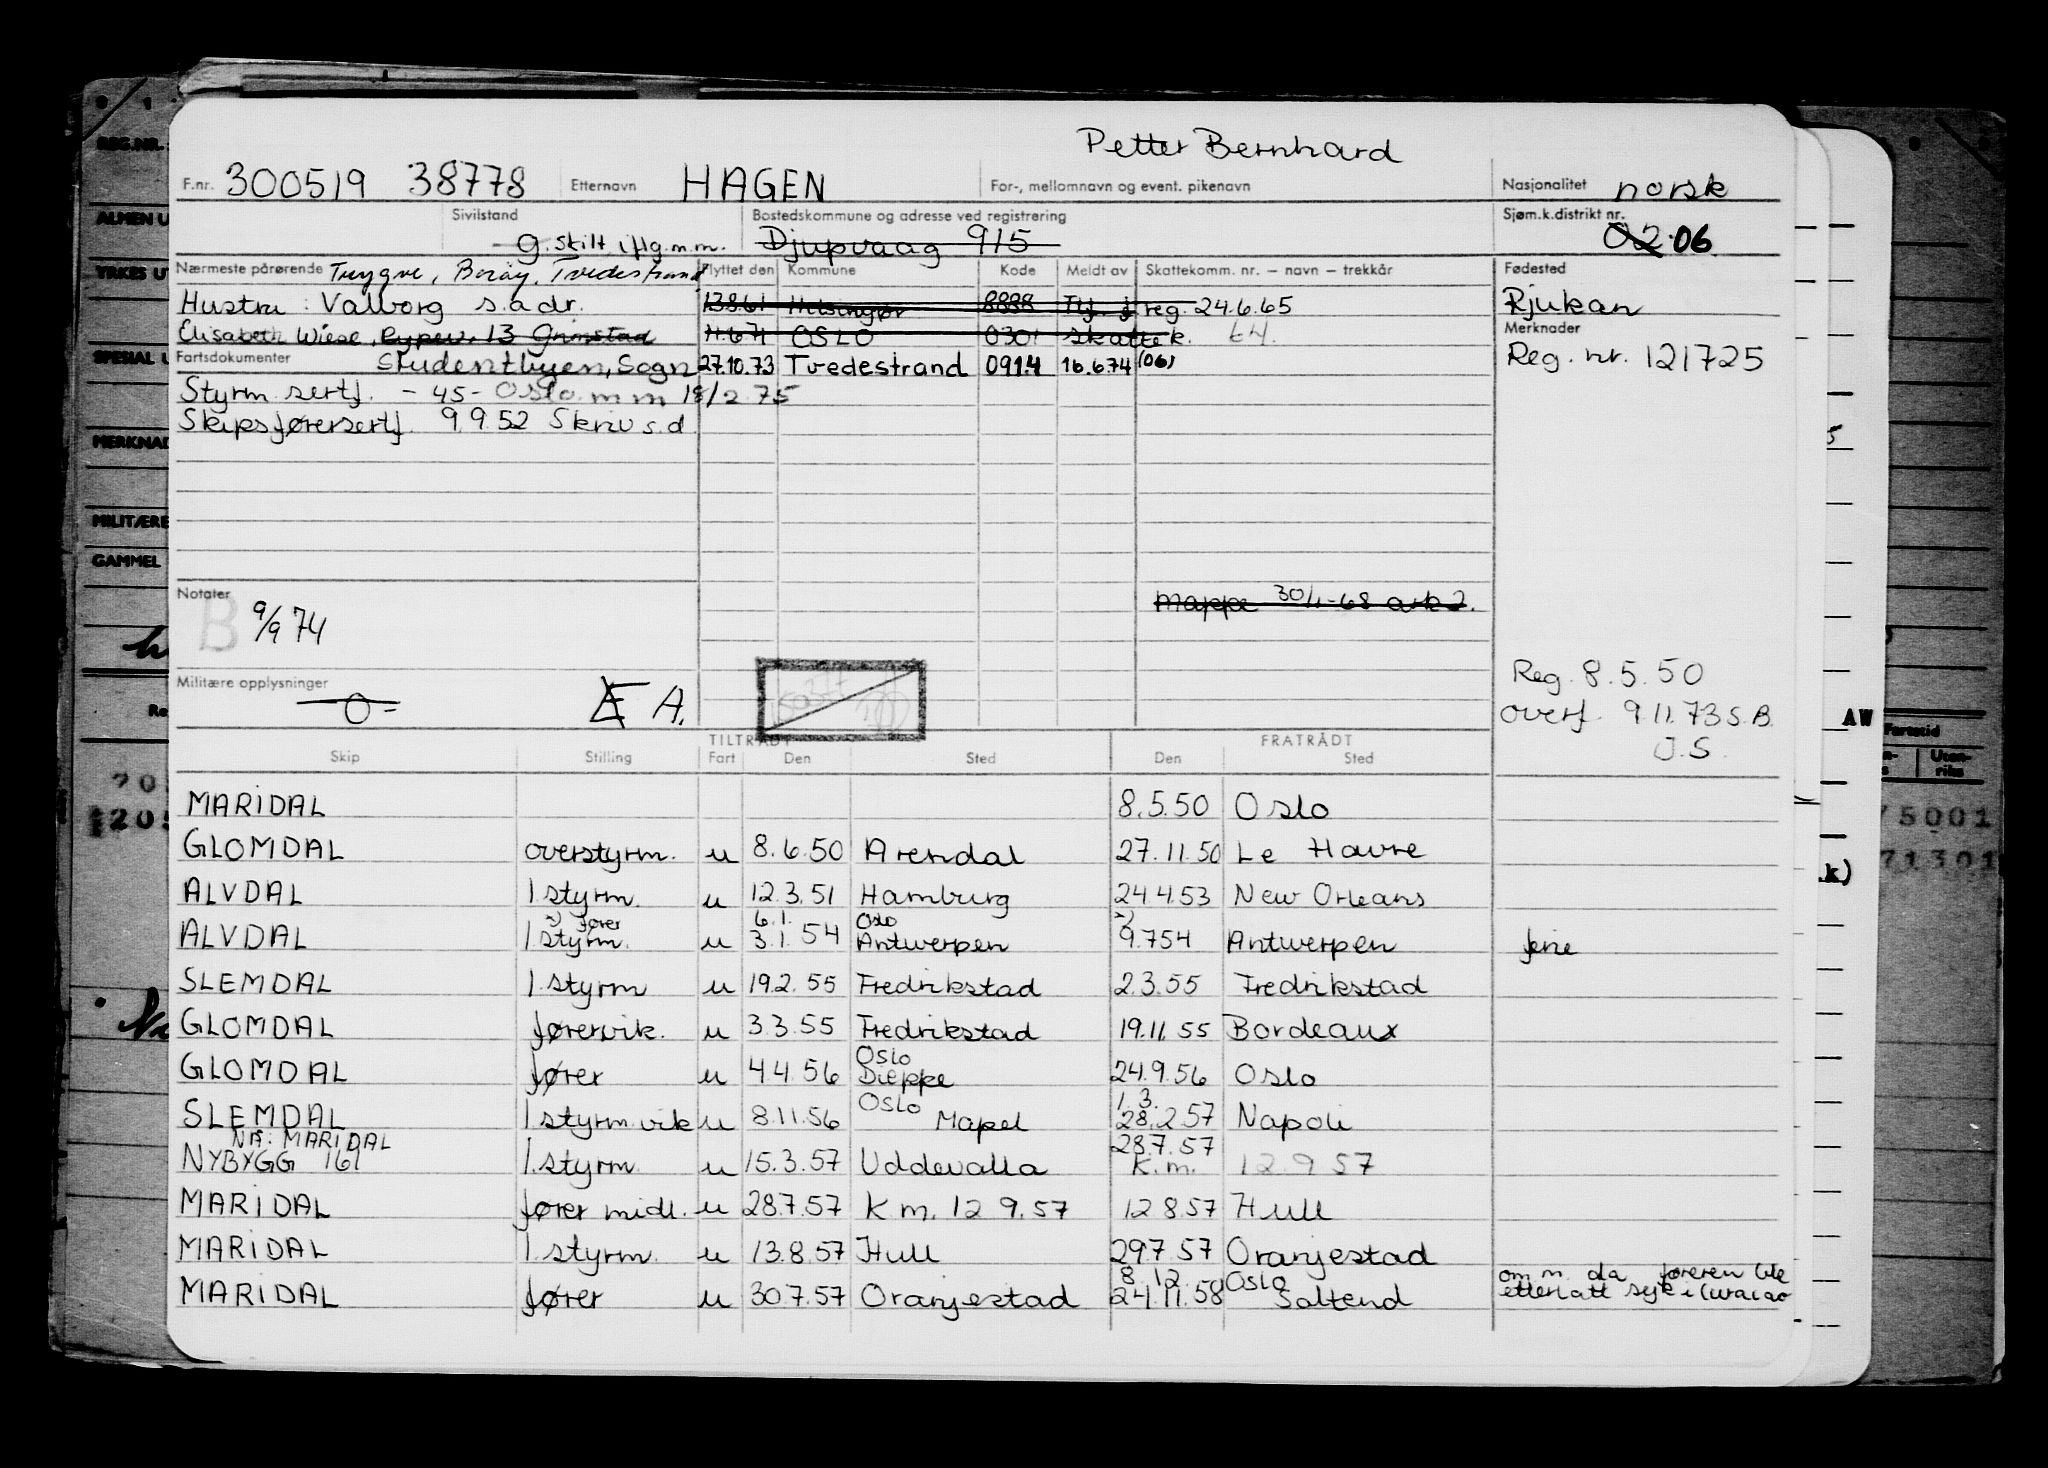 Petter Bernhard
F.nr. 300519 38778 Etternavn HAGEN For-, mellomnavn og event. pikenavn Nasjonalitet norsk
Sivilstand Bostedskommune og adresse ved registrering Sjøm.k.distrikt nr.
g. skilt iflg. m.m. Djupvaag 915 02 06
Nærmeste pårørende Trygve, Borøy, Tvedestrand Flyttet den Kommune Kode Meldt av Skattekomm. nr. – navn – trekkår Fødested
Hustru: Valborg s. adr. 13.8.61 Helsingør 8888 reg. 24.6.65 Rjukan
Elisabeth Wiese, 13 Grimstad OSLO 0301 skattek. 64. Merknader
Fartsdokumenter Studentbyen, Sogn 27.10.73 Tvedestrand 0914 16.6.74 (06) Reg. nr. 121725
Styrm sertf. - 45 - Oslo m m 18/2 75
Skipsførersertf. 9.9.52 Skriv s.d
Notater B 9/9 74 Mappe 30/1-68 ark 2.
Militære opplysninger -0- A.
Reg. 8.5.50
overf. 9.11.73 S.B.
J.S.
TILTRÅDT FRATRÅDT
Skip Stilling Fart Den Sted Den Sted
MARIDAL 8.5.50 Oslo
GLOMDAL overstyrm. u 8.6.50 Arendal 27.11.50 Le Havre
ALVDAL 1 styrm. u 12.3.51 Hamburg 24.4.53 New Orleans
fører 6.1. Oslo
ALVDAL 1 styrm. u 3.1.54 Antwerpen 9.7.54 Antwerpen ferie
SLEMDAL 1. styrm u 19.2.55 Fredrikstad 2.3.55 Fredrikstad
GLOMDAL førervik. u 3.3.55 Fredrikstad 19.11.55 Bordeaux
Oslo
GLOMDAL fører u 4.4.56 Dieppe 24.9.56 Oslo
Oslo 1.3.
SLEMDAL 1 styrm. vik u 8.11.56 Mapel 28.2.57 Napoli
Nå: MARIDAL 28.7.57
NYBYGG 161 1. styrm. u 15.3.57 Uddevalla K.m. 12.9.57
MARIDAL fører midl. u 28.7.57 K.m. 12.9.57 12.8.57 Hull
MARIDAL 1. styrm. u 13.8.57 Hull 29.7.57 Oranjestad
8.12. Oslo om m. da føreren ble
MARIDAL fører u 30.7.57 Oranjestad 24.11.58 Saltend etterlatt syk i Curacao